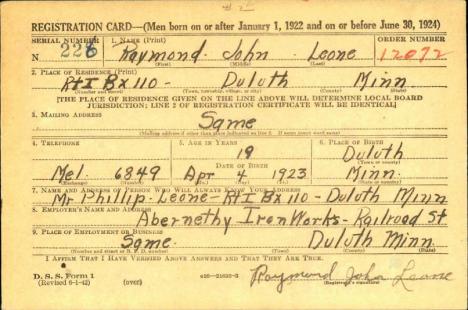 REGISTRATION CARD—(Men born on or after January 1, 1922 and on or before June 30, 1924)
SERIAL NUMBER 1. NAME (Print) ORDER NUMBER
N 226 Raymond John Leone 12072
(First) (Middle) (Last)
2. PLACE OF RESIDENCE (Print)
Rt I Bx 110 - Duluth Minn
(Number and street) (Town, township, village, or city) (State)
[THE PLACE OF RESIDENCE GIVEN ON THE LINE ABOVE WILL DETERMINE LOCAL BOARD
JURISDICTION; LINE 2 OF REGISTRATION CERTIFICATE WILL BE IDENTICAL]
3. MAILING ADDRESS
Same
[Mailing address if other than place indicated on line 2. If same insert word same]
4. TELEPHONE 5. AGE IN YEARS 6. PLACE OF BIRTH
19 Duluth
DATE OF BIRTH
Mel. 6849 Apr 4 1923 Minn.
(Exchange) (Number) (Mo.) (Day) (Yr.)
7. NAME AND ADDRESS OF PERSON WHO WILL ALWAYS KNOW YOUR ADDRESS
Mr Phillip Leone - Rt I Bx 110 - Duluth Minn
8. EMPLOYER'S NAME AND ADDRESS
Abernethy Iron Works - Railroad St
9. PLACE OF EMPLOYMENT OR BUSINESS
Same Duluth Minn
(Number and street or R. F. D. number) (Town) (County) (State)
I AFFIRM THAT I HAVE VERIFIED ABOVE ANSWERS AND THAT THEY ARE TRUE.
D. S. S. Form 1
(Revised 6-1-42) (over) Raymond John Leone
(Registrant's signature)